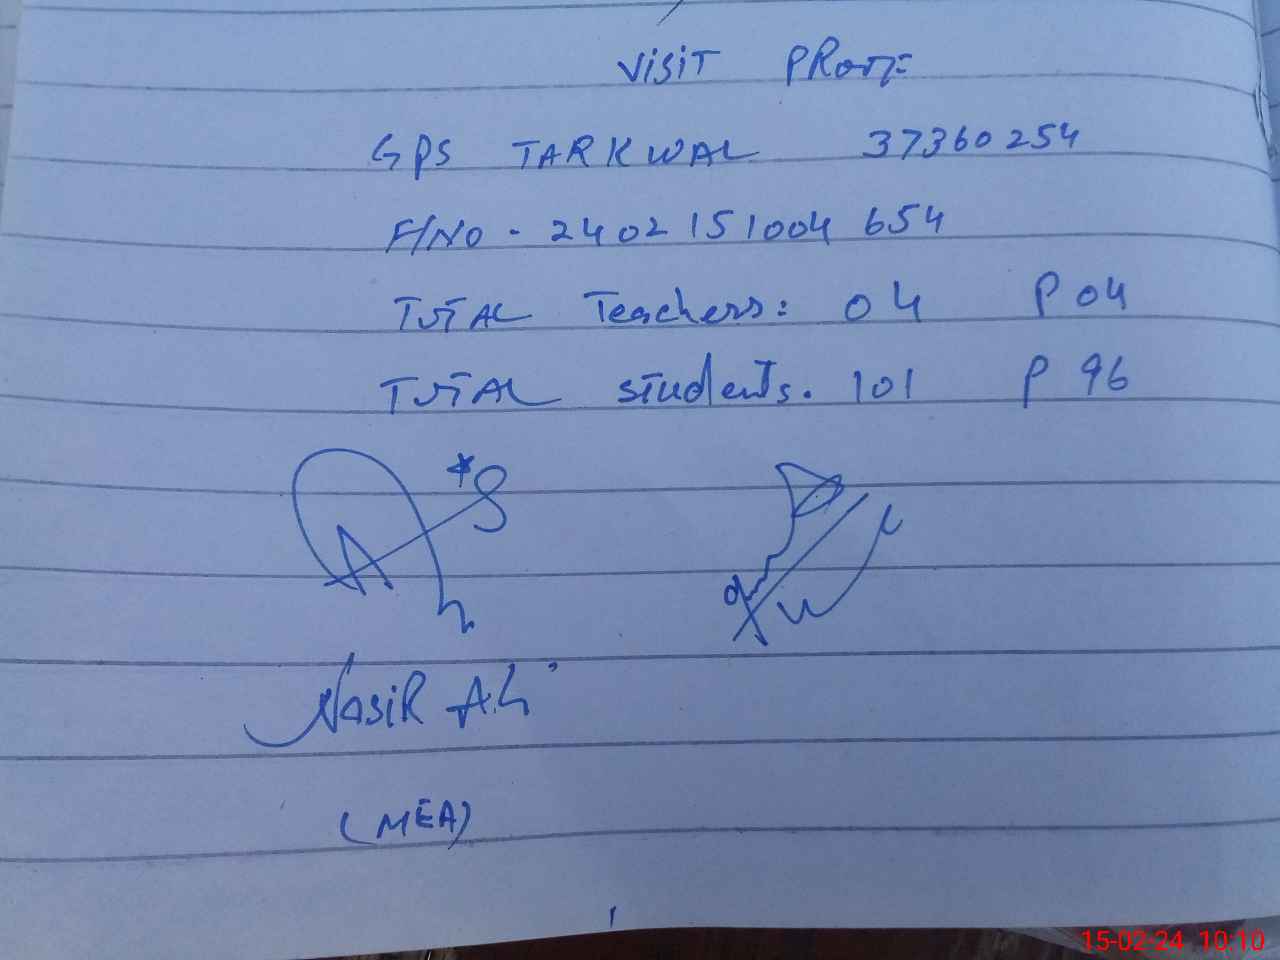 VISIT PROOF
GPS TARKWAL 37360254
F/NO - 2402151004654
TOTAL Teachers: 04 P 04
TOTAL Students. 101 P 96
NasiR Ali
(MEA)
15-02-24 10:10